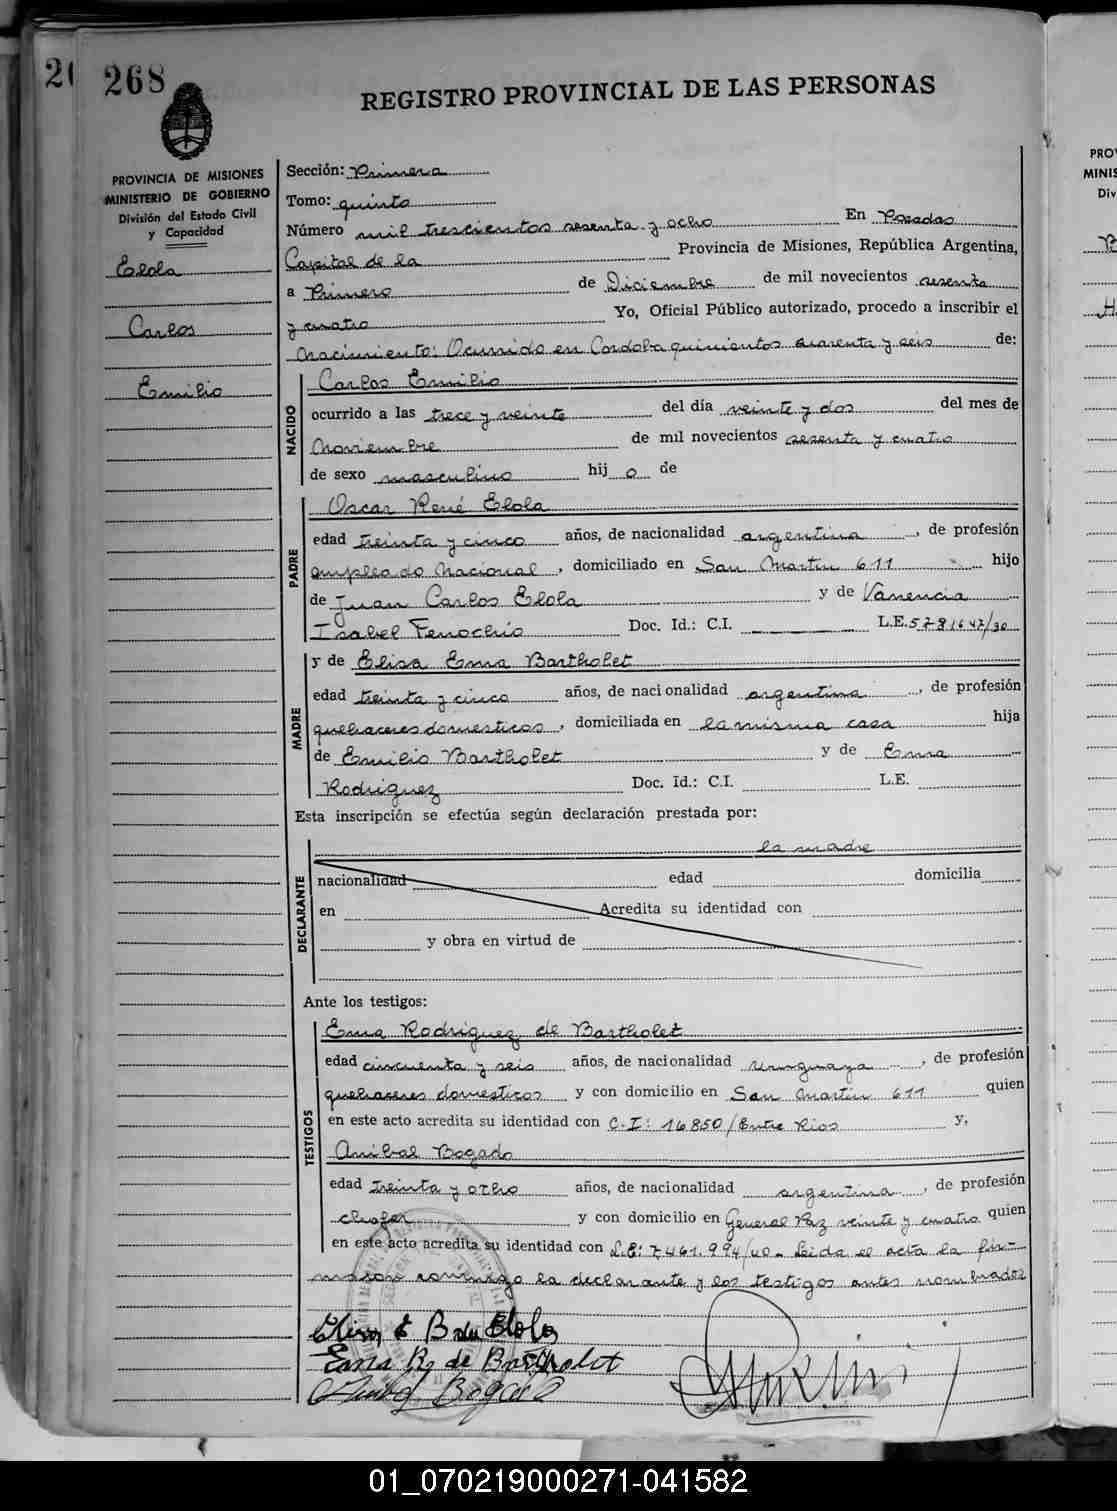 268
REGISTRO PROVINCIAL DE LAS PERSONAS
PROVINCIA DE MISIONES
MINISTERIO DE GOBIERNO
División del Estado Civil
y Capacidad
Elola
Carlos
Emilio
Sección: Primera
Tomo: quinto
Número mil trescientos sesenta y ocho En Posadas
Capital de la Provincia de Misiones, República Argentina,
a Primero de Diciembre de mil novecientos sesenta
y cuatro Yo, Oficial Público autorizado, procedo a inscribir el
Nacimiento: Ocurrido en Cordoba quinientos cuarenta y seis de:
NACIDO
Carlos Emilio
ocurrido a las trece y veinte del día veinte y dos del mes de
Noviembre de mil novecientos sesenta y cuatro
de sexo masculino hij o de
PADRE
Oscar René Elola
edad treinta y cinco años, de nacionalidad argentina, de profesión
empleado Nacional, domiciliado en San Martin 611 hijo
de Juan Carlos Elola y de Vanencia
Isabel Fenochio Doc. Id.: C.I. L.E. 5781647/30
MADRE
y de Elisa Ema Bartholet
edad treinta y cinco años, de nacionalidad argentina, de profesión
quehaceres domesticos, domiciliada en la misma casa hija
de Emilio Bartholet y de Ema
Rodriguez Doc. Id.: C.I. L.E.
Esta inscripción se efectúa según declaración prestada por:
DECLARANTE
la madre
nacionalidad edad domicilia
en Acredita su identidad con
y obra en virtud de
Ante los testigos:
TESTIGOS
Ema Rodriguez de Bartholet
edad cincuenta y seis años, de nacionalidad uruguaya, de profesión
quehaceres domesticos y con domicilio en San Martin 611 quien
en este acto acredita su identidad con C.I: 16850/Entre Rios y,
Anibal Bogado
edad treinta y ocho años, de nacionalidad argentina, de profesión
chofer y con domicilio en General Paz veinte y cuatro quien
en este acto acredita su identidad con L.E: 7.461.994/40. Leida el acta la fir-
maron conmigo la declarante y los testigos antes nombrados
Elisa E B de Elola
Ema R. de Bartholet
Anibal Bogado
01_070219000271-041582